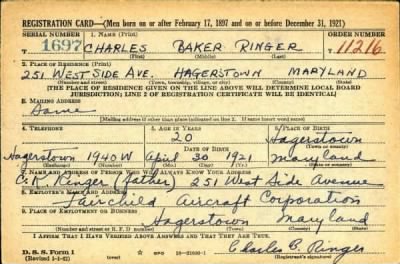 REGISTRATION CARD—(Men born on or after February 17, 1897 and on or before December 31, 1921)
SERIAL NUMBER 1. NAME (Print) ORDER NUMBER
1697 CHARLES BAKER RINGER 11216
(First) (Middle) (Last)
2. PLACE OF RESIDENCE (Print)
251 WEST SIDE AVE. HAGERSTOWN MARYLAND
(Number and street) (Town, township, village, or city) (County) (State)
[THE PLACE OF RESIDENCE GIVEN ON THE LINE ABOVE WILL DETERMINE LOCAL BOARD
JURISDICTION; LINE 2 OF REGISTRATION CERTIFICATE WILL BE IDENTICAL]
3. MAILING ADDRESS
Same
[Mailing address if other than place indicated on line 2. If same insert word same]
4. TELEPHONE 5. AGE IN YEARS 6. PLACE OF BIRTH
20 Hagerstown
DATE OF BIRTH
Hagerstown 1940W April 30 1921 Maryland
7. NAME AND ADDRESS OF PERSON WHO WILL ALWAYS KNOW YOUR ADDRESS
Ringer (father) 251 West Side Avenue
8. EMPLOYER'S NAME AND ADDRESS
Fairchild Aircraft Corporation
9. PLACE OF EMPLOYMENT OR BUSINESS
Hagerstown Maryland
(Number and street or R. F. D. number) (Town) (County) (State)
I AFFIRM THAT I HAVE VERIFIED ABOVE ANSWERS AND THAT THEY ARE TRUE.
D. S. S. Form 1 GPO Charles B. Ringer
(Revised 1-1-42) (over) (Registrant's signature)